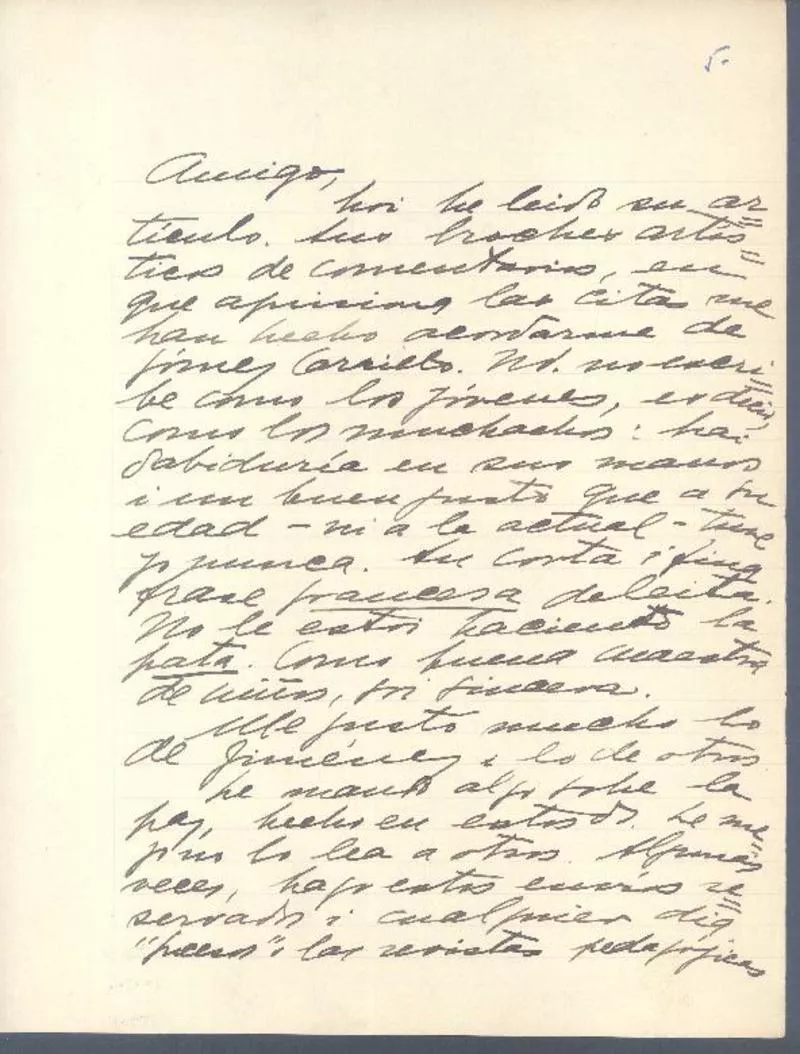 5.-
Amigo,
hoi he leido su ar=
tículo. Sus broches artís=
ticos de comentarios, en
que aprisiona las citas me
han hecho acordarme de
Gómez Carrillo. No. no escri=
be como los jóvenes, es decir,
como los muchachos: hai
sabiduría en sus manos
i un buen gusto que a su
edad - ni a la actual - tuve
yo nunca. Su corta i fina
frase francesa deleita.
No le estoi haciendo la
pata. Como buena maestra
de niños, soi sincera.
Me gustó mucho lo
de Jiménez i lo de otros
Le mando algo sobre la
paz, hecho en estos ds. Le
no lo lea a otros. Algunas
veces, hago estos envíos re=
servados i cualquier día
i las revistas pedagójicas